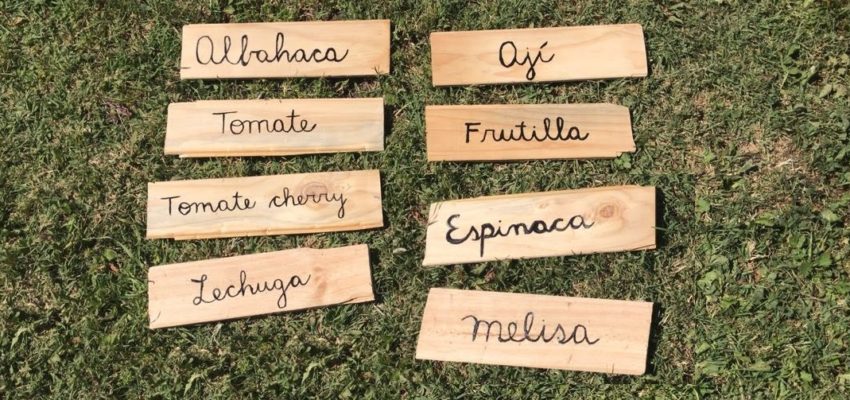 Albahaca
Tomate
Tomate cherry
Lechuga
Ají
Frutilla
Espinaca
melisa